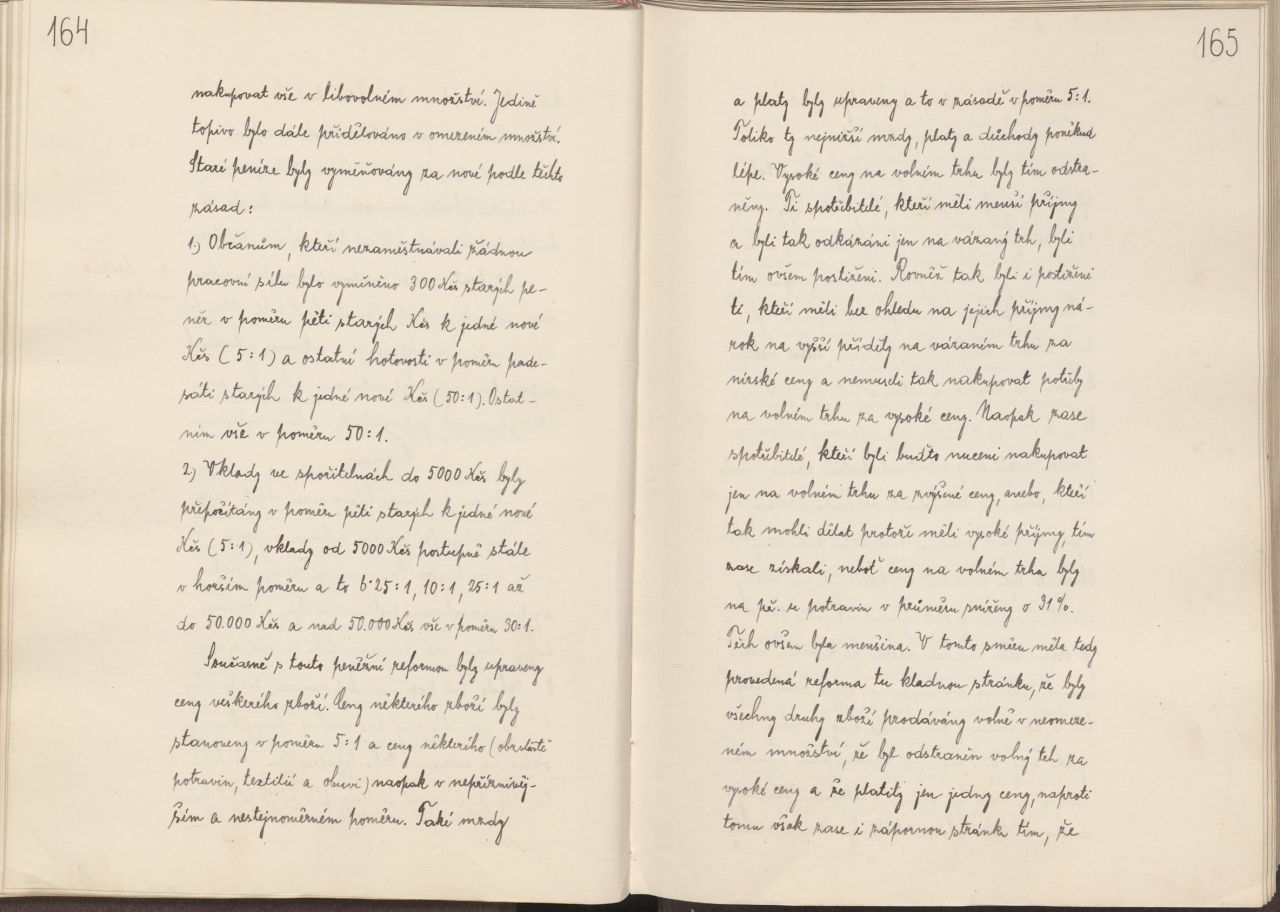 164
nakupovat vše v libovolném množství. Jedině
topivo bylo dále přidělováno v omezeném množství.
Staré peníze byly vyměňovány za nové podle těchto
zásad:
1.) Občanům, kteří nezaměstnávali žádnou
pracovní sílu bylo vyměněno 300 Kčs starých pe-
něz v poměru pěti starých Kčs k jedné nové
Kčs (5:1) a ostatní hotovosti v poměru pade-
sáti starých k jedné nové Kčs (50:1). Ostat-
ním vše v poměru 50:1.
2.) Vklady ve spořitelnách do 5000 Kčs byly
přepočítány v poměru pěti starých k jedné nové
Kčs (5:1), vklady od 5000 Kčs postupně stále
v horším poměru a to 6·25:1, 10:1, 25:1 až
do 50.000 Kčs a nad 50.000 Kčs vše v poměru 30:1.
Současně s touto peněžní reformou byly upraveny
ceny veškerého zboží. Ceny některého zboží byly
stanoveny v poměru 5:1 a ceny některého (obzvláště
potravin, textilií a obuvi) naopak v nepříznivěj-
ším a nestejnoměrném poměru. Také mzdy
165
a platy byly upraveny a to v zásadě v poměru 5:1.
Toliko ty nejnižší mzdy, platy a důchody poněkud
lépe. Vysoké ceny na volném trhu byly tím odstra-
něny. Ti spotřebitelé, kteří měli menší příjmy
a byli tak odkázáni jen na vázaný trh, byli
tím ovšem postiženi. Rovněž tak byli i postiženi
ti, kteří měli bez ohledu na jejich příjmy ná-
rok na vyšší příděly na vázaném trhu za
nízské ceny a nemuseli tak nakupovat potřeby
na volném trhu za vysoké ceny. Naopak zase
spotřebitelé, kteří byli buďto nuceni nakupovat
jen na volném trhu za zvýšené ceny, anebo, kteří
tak mohli dělat protože měli vysoké příjmy, tím
zase získali, neboť ceny na volném trhu byly
na př. u potravin v průměru sníženy o 31%.
Těch ovšem byla menšina. V tomto směru měla tedy
provedená reforma tu kladnou stránku, že byly
všechny druhy zboží prodávány volně v neomeze-
ném množství, že byl odstraněn volný trh za
vysoké ceny a že platily jen jedny ceny, naproti
tomu však zase i zápornou stránku tím, že